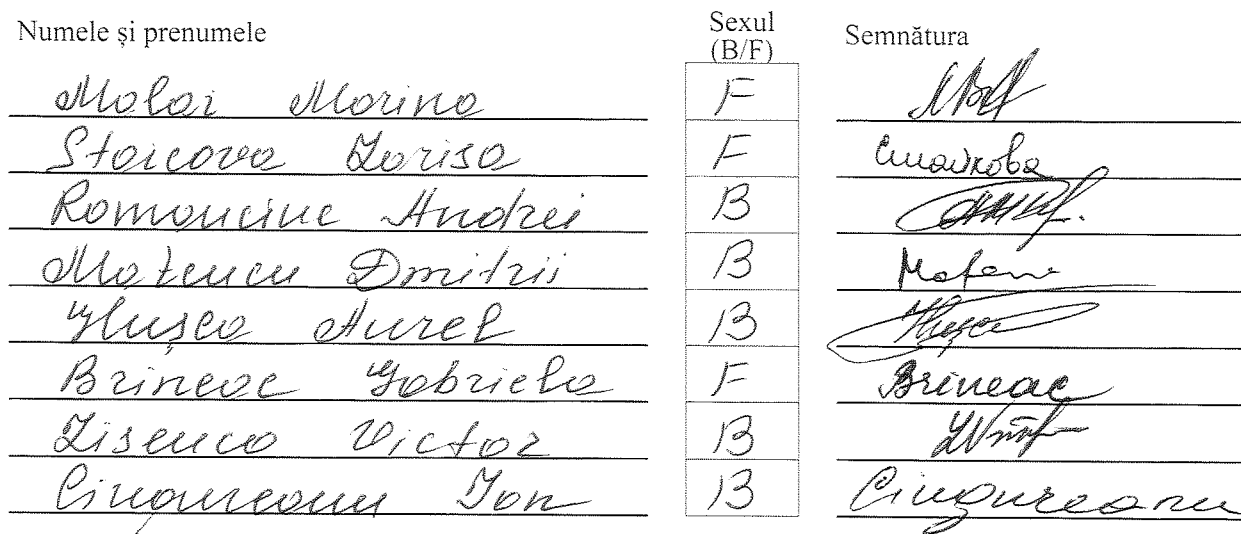 Numele și prenumele Sexul (B/F) Semnătura
Malai Marina F
Stoicova Larisa F Стайкова
Romanciuc Andrei B
Mateucu Dmitrii B
Hlușca Aurel B Hlușca
Brineac Gabriela F Brineac
Lisenco Victor B
Cingureanu Ion B Cingureanu